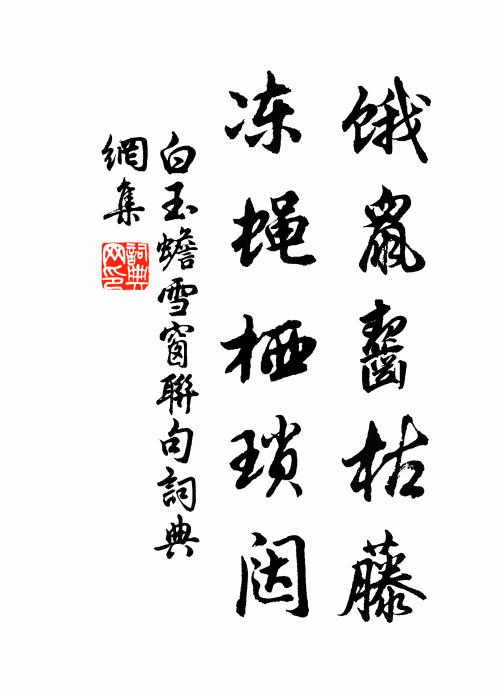 饿鼠齧枯藤
冻蝇栖琐闼
白玉蟾雪窗聯句詞典
網集
詞典
网印